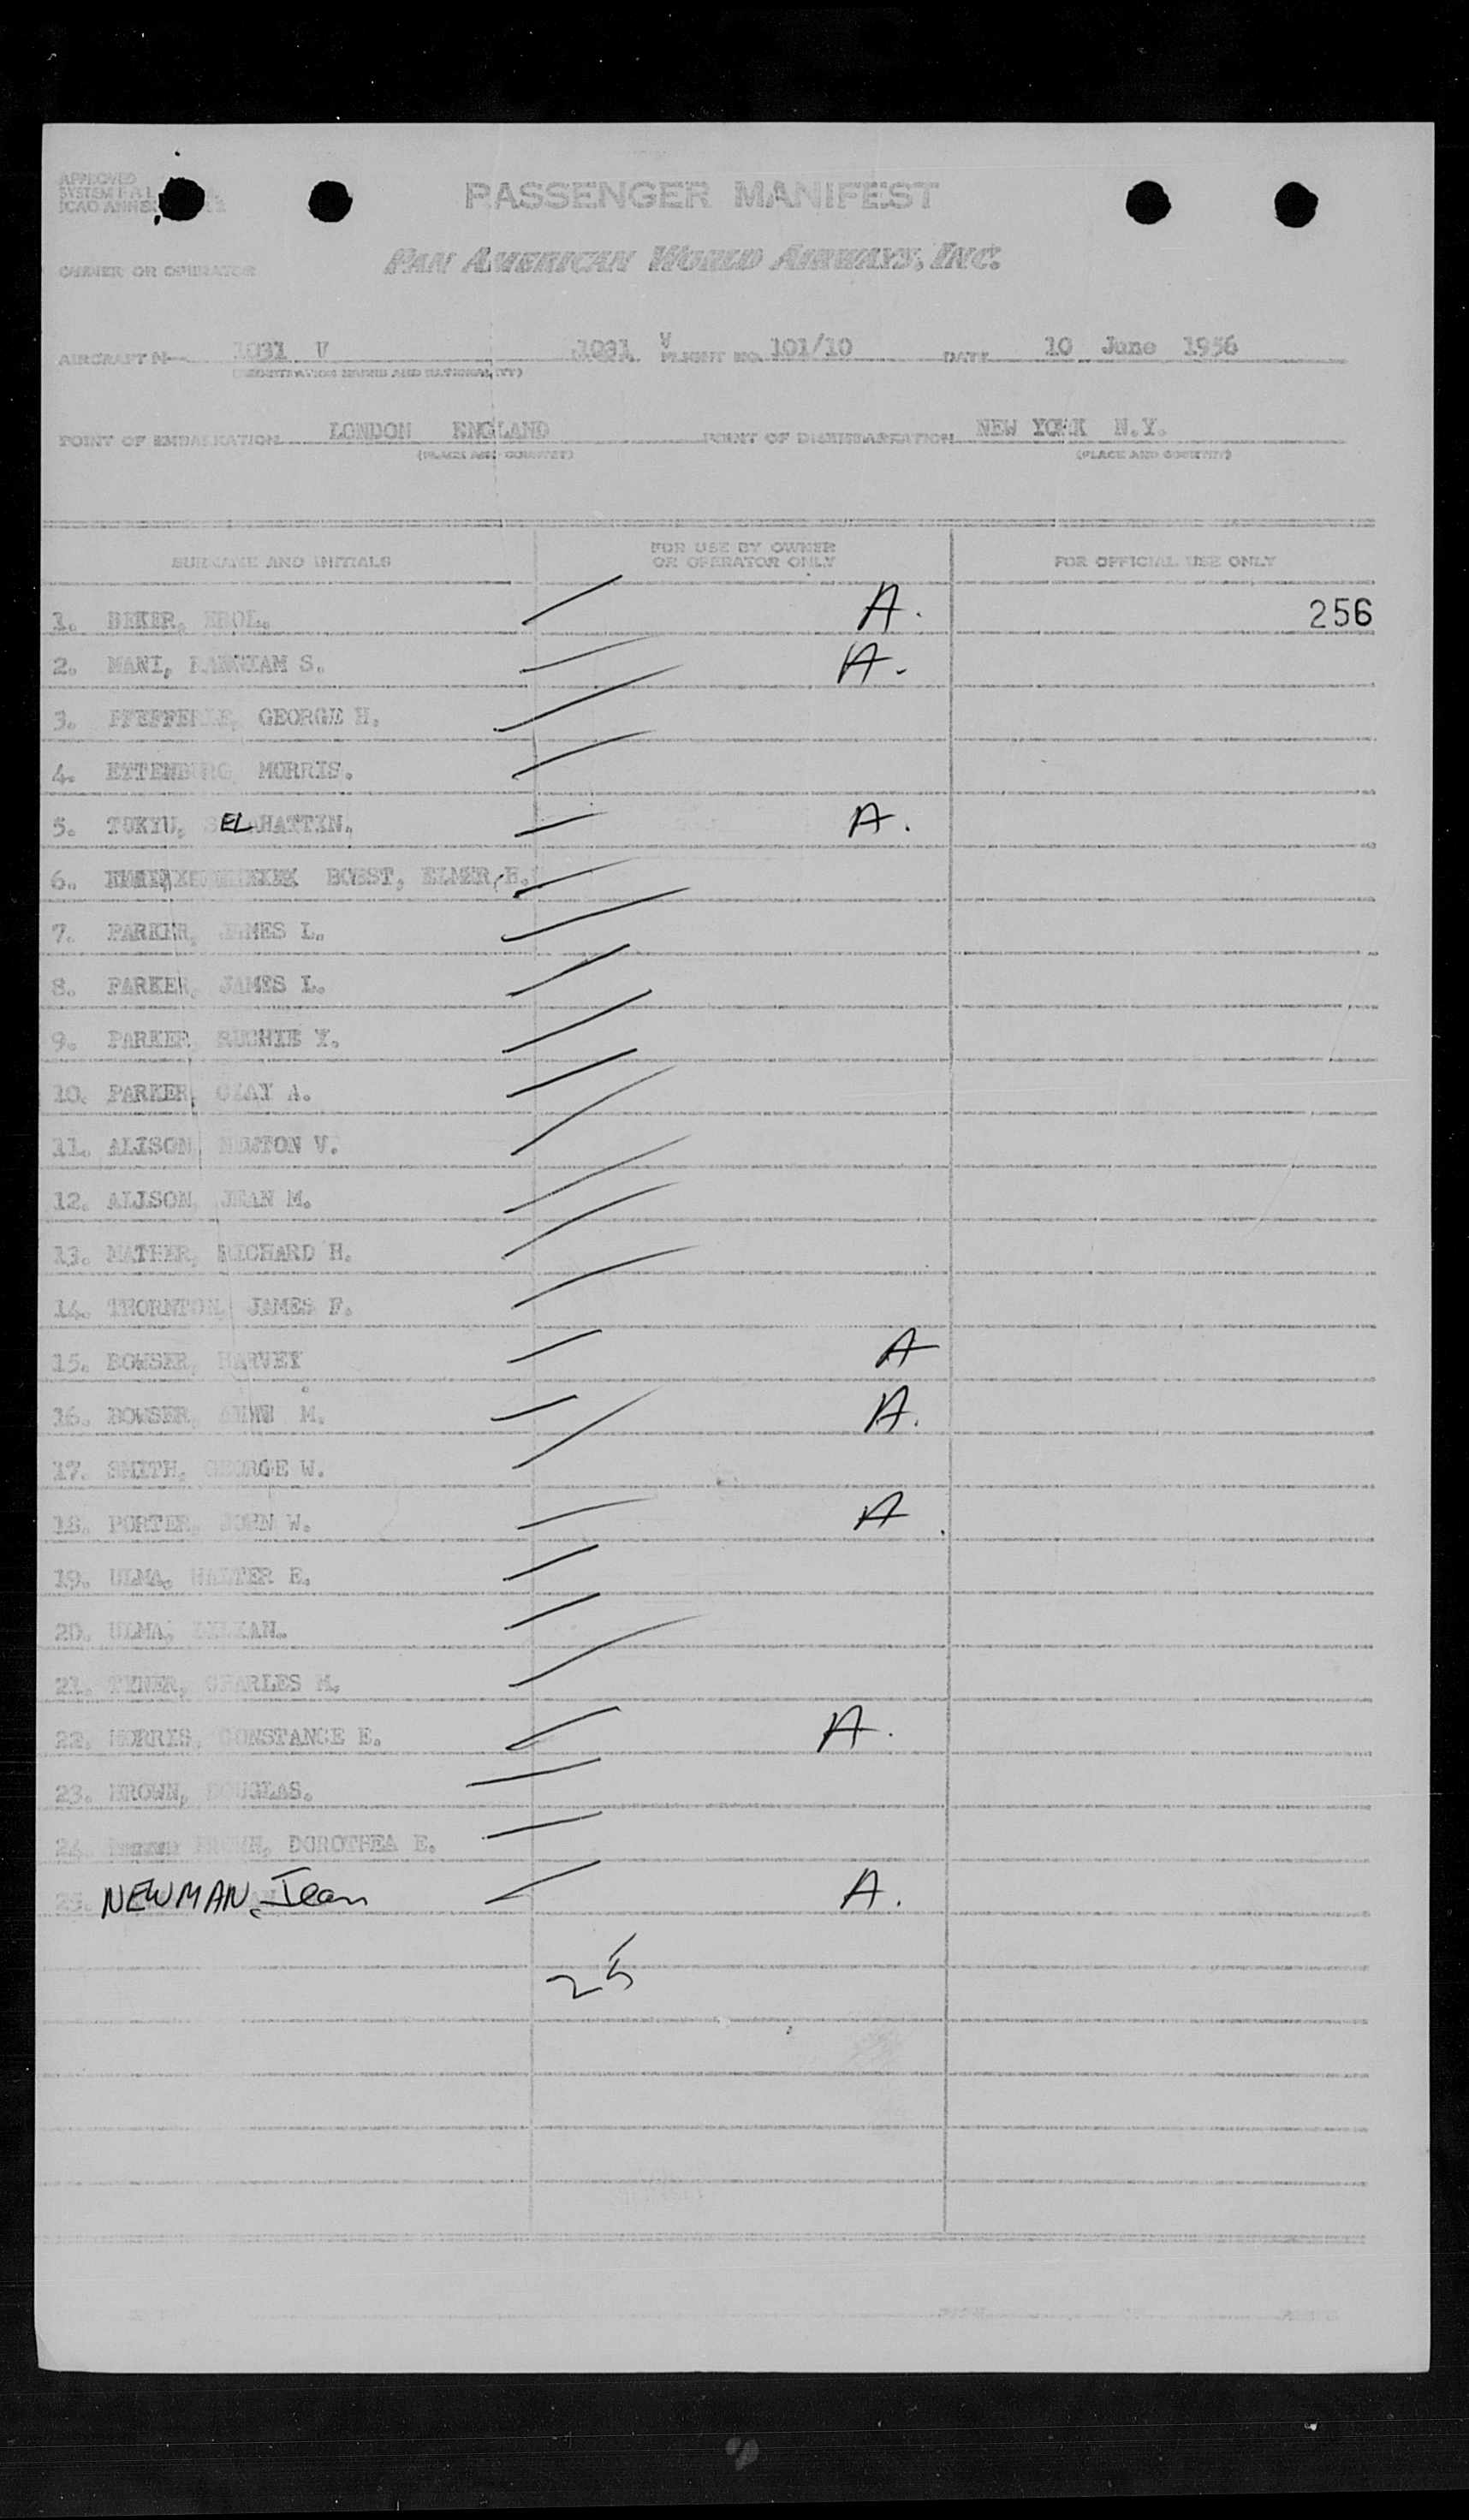 APPROVED
SYSTEM
ICAO ANNEX
PASSENGER MANIFEST
PAN AMERICAN WORLD AIRWAYS, INC.
OWNER OR OPERATOR
AIRCRAFT N— 1031 V 1031 V FLIGHT NO. 101/10 DATE 10 June 1956
(REGISTRATION MARKS AND NATIONALITY)
POINT OF EMBARKATION LONDON ENGLAND POINT OF DISEMBARKATION NEW YORK N.Y.
(PLACE AND COUNTRY) (PLACE AND COUNTRY)
SURNAME AND INITIALS FOR USE BY OWNER OR OPERATOR ONLY FOR OFFICIAL USE ONLY
1. BIKER, EROL. A. 256
2. MANI, S. A.
3. GEORGE H.
4. ETTENBURG, MORRIS.
5. TOKYU, SELAHATTIN. A.
6. BOBST, ELMER, H.
7. PARKER, JAMES L.
8. PARKER, JAMES L.
9. PARKER, Y.
10. PARKER, A.
11. ALISON, NEWTON V.
12. ALISON, JEAN M.
13. MATHER, RICHARD H.
14. THORNTON, JAMES F.
15. BOWSER, HARVEY A
16. BOWSER, M. A.
17. SMITH, GEORGE W.
18. PORTER, JOHN W. A
19. ULMA, WALTER E.
20. ULMA,
21. CHARLES M.
22. MORRIS, CONSTANCE E. A.
23. BROWN, DOUGLAS.
24. BROWN, DOROTHEA E.
25. NEWMAN, Jean A.
25